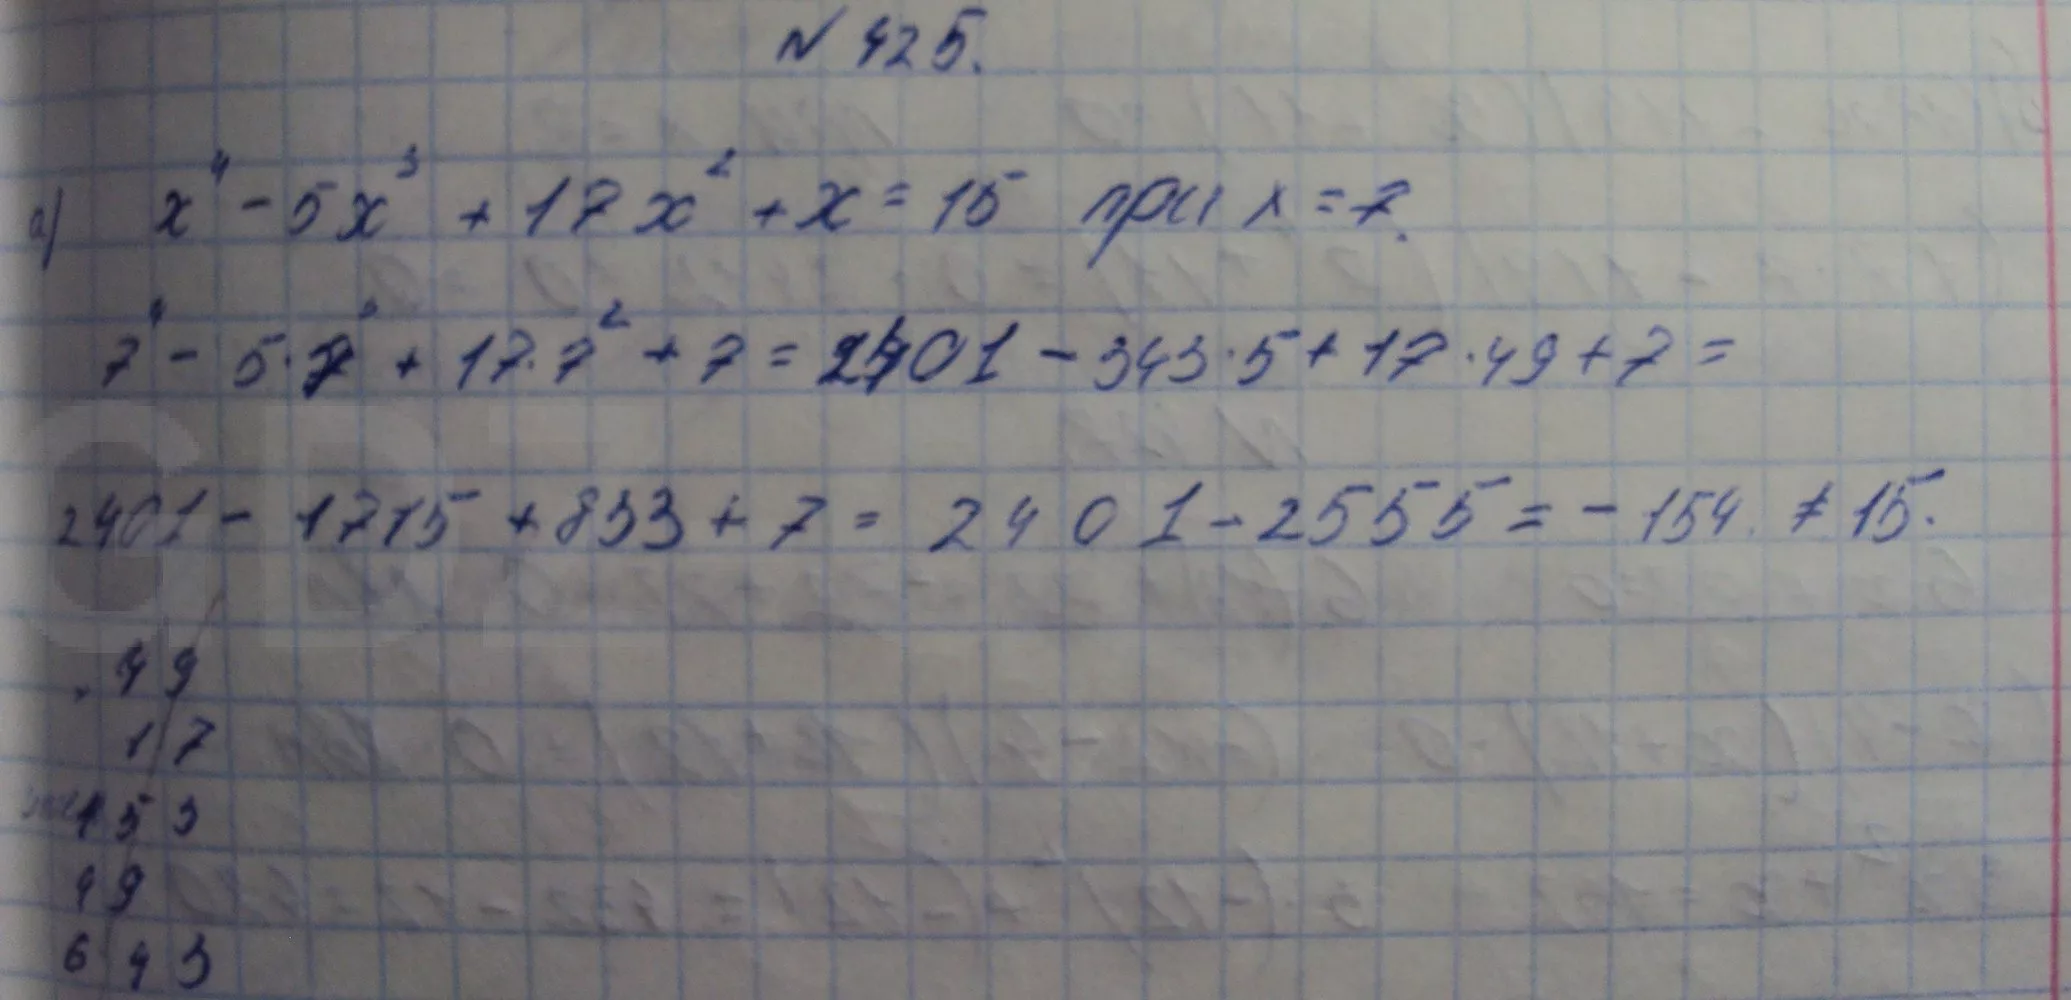 N 425.
а) x⁴ - 5x³ + 17x² + x = 15 при x = 7.
7⁴ - 5·7³ + 17·7² + 7 = 2401 - 343·5 + 17·49 + 7 =
2401 - 1715 + 833 + 7 = 2401 - 2555 = - 154. ≠ 15.
49
17
153
49
643